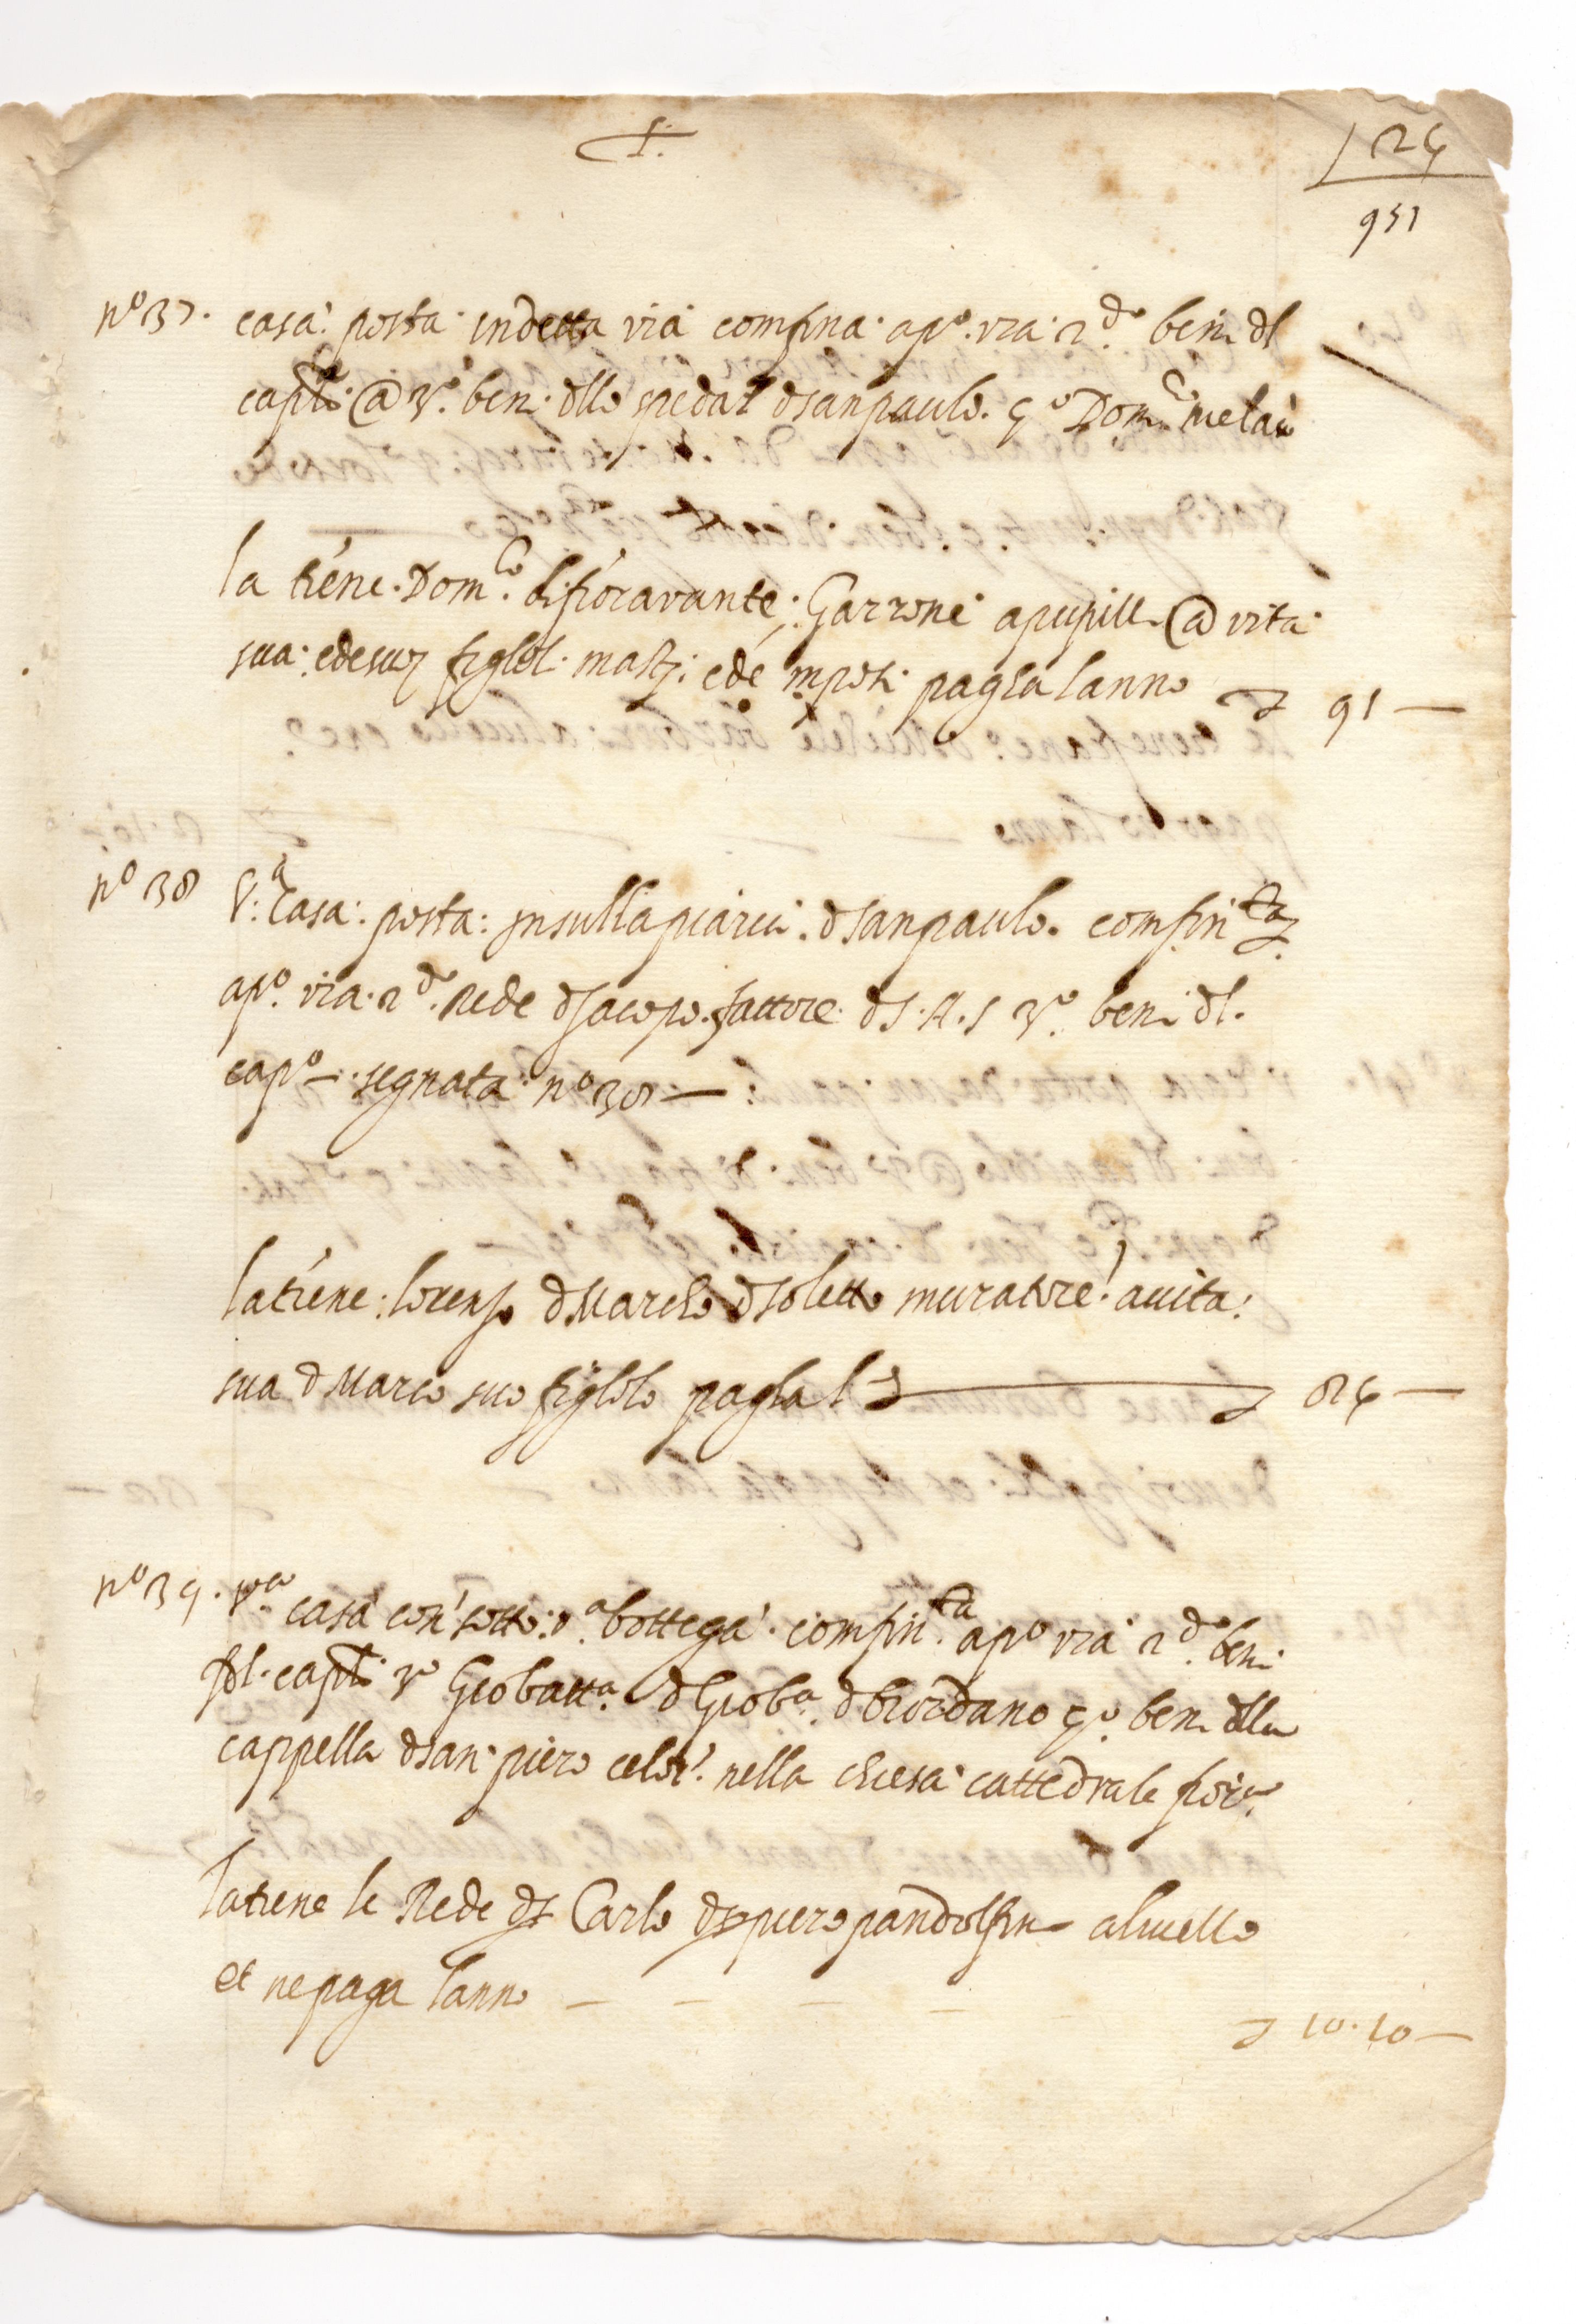 24
951
nº 37. casa: posta indetta via confina. apº. via. 2do beni dl
capto. @ 3º. beni. dllo spedal dsanpaulo. 4º Domco
la tiene. Domco. di fioravante: Garzone apupill @ vita
sua: edesuoi figlol. masti: ede nipoti pagha lanno 91 —
nº 38 Va. Casa: posta: insulla piazza. dsanpaulo. confinta
apº. via. 2do. Rede dJacopo. fattore. d S. A. S 3º. beni dl.
capº — segnata nº 38 —
latiene: lorenzo dMarcho muratore! avita:
sua d Marco suo figlolo pagha l 84 —
nº 39. va casa con sotto: va bottega. confinta apº via 2do beni
dl. capto 3º Giobatta. dGioba. 4º beni dlla
cappella dsan piero nella chiesa cattedrale
latiene le Rede Carlo piero pandolfini alivello
et nepaga lanno — — — — 10. 10 —